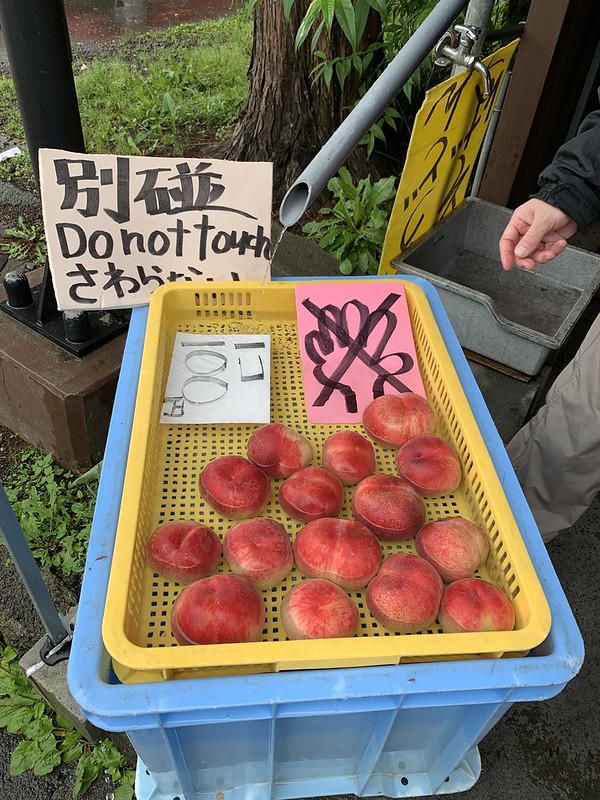 別碰
Do not touch
さわらない
1コ
100円